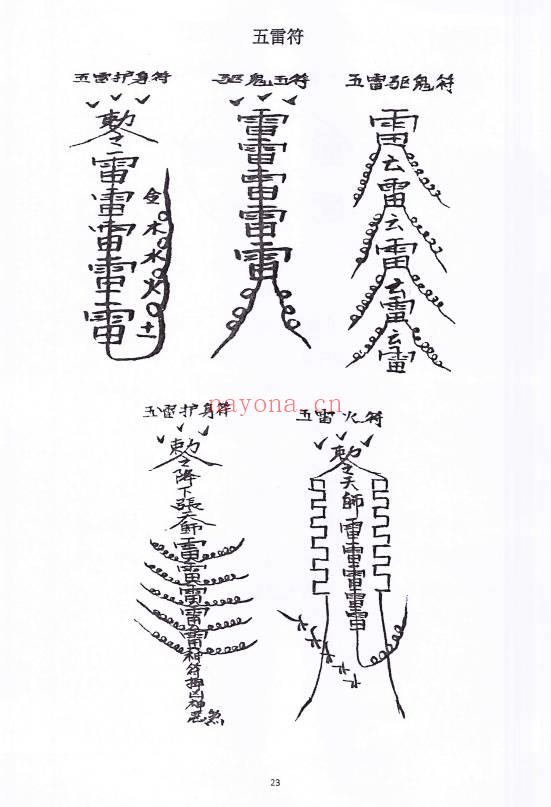 五雷符
五雷护身符
敕令
雷
雷
雷
雷
雷
金
木
水
火
土
驱鬼五符
雷
雷
雷
雷
雷
五雷驱鬼符
雷
云
雷
云
雷
云
雷
云
雷
payona.cn
五雷护身符
敕令
降下張天師
雷
雷
雷
雷
雷
神符押凶神惡煞
五雷火符
敕令
天師
雷
雷
雷
雷
雷
火
火
火
火
火
23